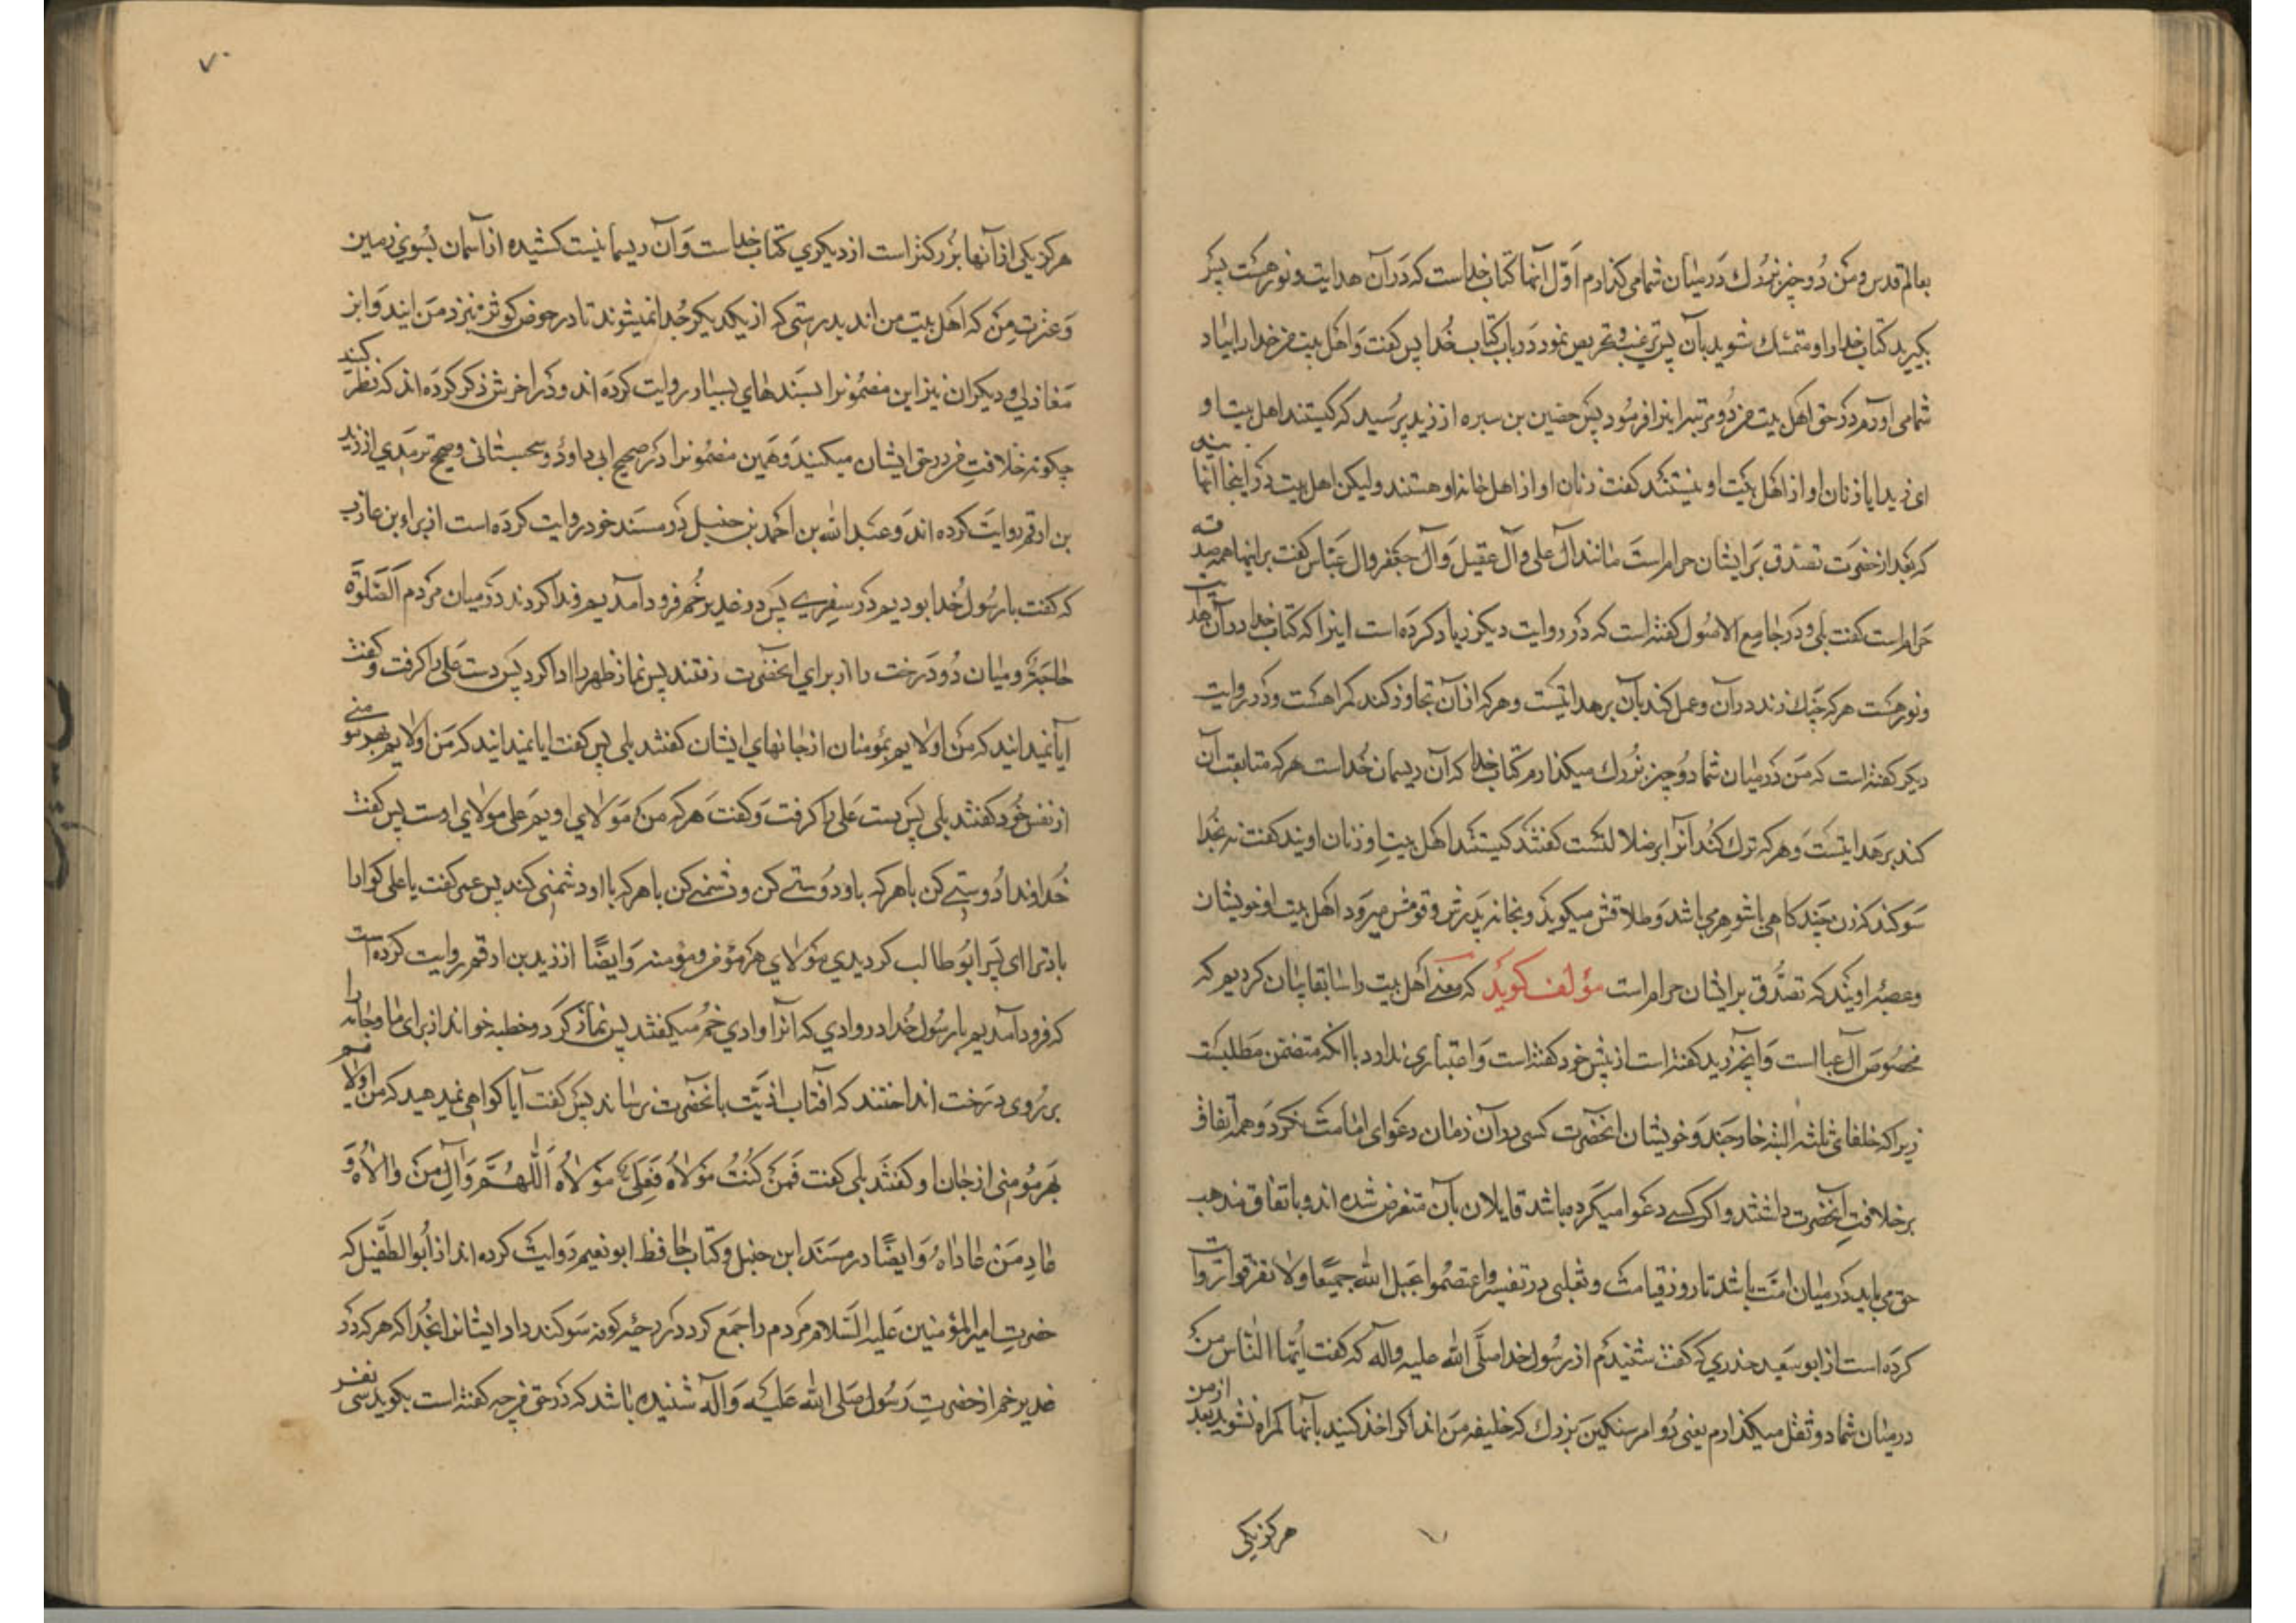 بعالم قدس و من دو چیز بزرك در میان شما می کذارم اول آنها کتاب خداست که در آن هدایت و نور هست پس
بکیرید کتاب خدا را و متمسك شوید بآن پس ترغیب و تحریص نمود در باب کتاب خدا پس کفت و اهل بیت من خدا را بیاد
شما می آورم در حق اهل بیت من دو مرتبه اینرا فرمود پس حصین بن سبره از زید پرسید که کیستند اهل بیت او
ای زید ایا زنان او از اهل بیت او نیستند کفت زنان او از اهل خانه او هستند ولیکن اهل بیت در اینجا آنهایند
که بعد از حضرت تصدق بر ایشان حرام است مانند آل علی و آل عقیل و آل جعفر و آل عباس کفت بر اینها همه صدقه
حرام است کفت بلی و در جامع الاصول کفته است که در روایت دیکر زیاد کرده است اینرا که کتاب خدا در آن هدایت
و نور هست هر که چنك زند در آن و عمل کند بآن بر هدایتست و هر که از آن تجاوز کند کمراهست و در روایت
دیکر کفته است که من در میان شما دو چیز بزرك میکذارم کتاب خدا که آن ریسمان خداست هر که متابعت آن
کند بر هدایتست و هر که ترك کند آنرا بر ضلالتست کفتند کیستند اهل بیت او زنان اویند کفت نه بخدا
سوکند که زن چند کاهی با شوهر می باشد و طلاقش میکوید و بخانه پدرش و قومش میرود اهل بیت او خویشان
و عصبه اویند که تصدق بر ایشان حرام است مؤلف کوید که معنی اهل بیت را سابقا بیان کردیم که
مخصوص آل عبا است و آنچه زید کفته است از پیش خود کفته است و اعتباری ندارد با آنکه متضمن مطلبست
زیرا که خلفای ثلثه البته خارجند و خویشان آنحضرت کسی در آن زمان دعوای امامت نکرد و همه اتفاق
بر خلافت آنحضرت داشتند و اکر کسی دعوا میکرده باشد قایلان بآن منقرض شده اند و باتفاق مذهب
حق می باید در میان امت باشد تا روز قیامت و ثعلبی در تفسیر واعتصموا بحبل الله جمیعا ولا تفرقوا روایت
کرده است از ابو سعید خدری که کفت شنیدم از رسول خدا صلی الله علیه و آله که کفت ایها الناس من
در میان شما دو ثقل میکذارم یعنی دو امر سنکین بزرك که خلیفه من اند اکر اخذ کنید بآنها کمراه نشوید بعد از من
هرکز یکی
۷۰
هرکز یکی از آنها بزرکتر است از دیکری کتاب خداست و آن ریسمانیست کشیده از آسمان بسوی زمین
و عترت من که اهل بیت من اند بدرستی که از یکدیکر جدا نمیشوند تا در حوض کوثر بنزد من ایند و ابن
مغازلی و دیکران نیز این مضمونرا بسندهای بسیار روایت کرده اند و در اخرش ذکر کرده اند که نظر کنید
چکونه خلافت من در حق ایشان میکنید و همین مضمونرا در صحیح ابی داود و سجستانی و صحیح ترمذی از زید
بن ارقم روایت کرده اند و عبد الله بن احمد بن حنبل در مسند خود روایت کرده است از براء بن عازب
که کفت با رسول خدا بودیم در سفری پس در غدیر خم فرود آمدیم و ندا کردند در میان مردم الصلوة
جامعة و میان دو درخت را از برای آنحضرت رفتند پس نماز ظهر را ادا کرد پس دست علی را کرفت و کفت
آیا نمیدانید که من اولایم بمؤمنان از جانهای ایشان کفتند بلی پس کفت ایا نمیدانید که من اولایم بهر مومنی
از نفس خود کفتند بلی پس دست علی را کرفت و کفت هر که من مولای اویم علی مولای اوست پس کفت
خداوندا دوستی کن با هر که با او دوستی کن و دشمنی کن با هر که با او دشمنی کند پس عمر کفت یا علی کوارا
باد ترا ای پسر ابو طالب کردیدی مولای هر مؤمن و مؤمنه و ایضا از زید بن ارقم روایت کرده است
که فرود آمدیم با رسول خدا در وادی که آنرا وادی خم میکفتند پس نماز کرد و خطبه خواند از برای ما و جامه را
بر روی درخت انداختند که آفتاب اذیت بآنحضرت نرساند پس کفت آیا کواهی نمیدهید که من اولایم
بهر مؤمنی از جان او کفتند بلی کفت فمن کنت مولاه فعلی مولاه اللهم وال من والاه و
عاد من عاداه و ایضا در مسند ابن حنبل و کتاب حافظ ابو نعیم روایت کرده اند از ابو الطفیل که
حضرت امیر المؤمنین علیه السلام مردم را جمع کرد در رحبه کوفه سوکند داد ایشانرا بخدا که هر که در
غدیر خم از حضرت رسول صلی الله علیه و آله شنیده باشد که در حق من چه کفته است بکوید سی نفر